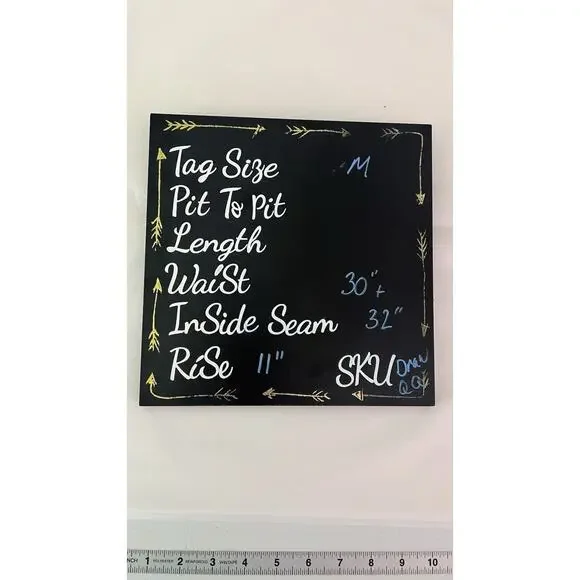 Tag Size M
Pit To Pit
Length
Waist 30"+
InSide Seam 32"
RiSe 11" SKU
INCH 1 POLYESTER 2 REINFORCED 3 VINYL TAPE 4 5 6 7 8 9 10